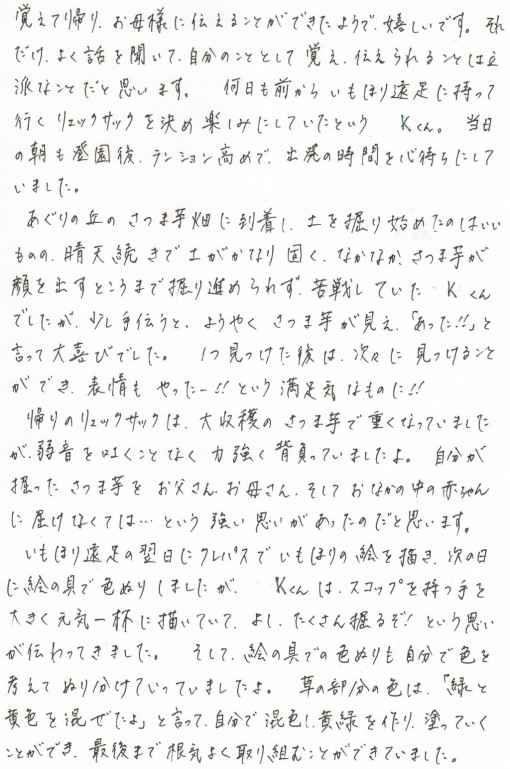 覚えて帰り、お母様に伝えることができたようで、嬉しいです。それ
だけ、よく話を聞いて、自分のこととして覚え、伝えられることは立
派なことだと思います。 何日も前からいもほり遠足に持って
行くリュックサックを決め楽しみにしていたという Kくん。 当日
の朝も登園後、テンション高めで、出発の時間を心待ちにして
いました。
あぐりの丘のさつま芋畑に到着し、土を掘り始めたのはいい
ものの、晴天続きで土がかなり固く、なかなか、さつま芋が
顔を出すところまで掘り進められず、苦戦していた Kくん
でしたが、少し手伝うと、ようやくさつま芋が見え、「あった!!」と
言って大喜びでした。 1つ見つけた後は、次々に見つけること
ができ、表情もやったー!!という満足気なものに!!
帰りのリュックサックは、大収穫のさつま芋で重くなっていました
が、弱音を吐くことなく力強く背負っていましたよ。 自分が
掘ったさつま芋をお父さん、お母さん、そしておなかの中の赤ちゃん
に届けなくては…という強い思いがあったのだと思います。
いもほり遠足の翌日にクレパスでいもほりの絵を描き、次の日
に絵の具で色ぬりしましたが、 Kくんは、スコップを持つ手を
大きく元気一杯に描いていて、よし、たくさん掘るぞ!という思い
が伝わってきました。 そして、絵の具での色ぬりも自分で色を
考えてぬり分けていっていましたよ。 草の部分の色は、「緑と
黄色を混ぜたよ」と言って、自分で混色し、黄緑を作り、塗っていく
ことができ、最後まで根気よく取り組むことができていました。